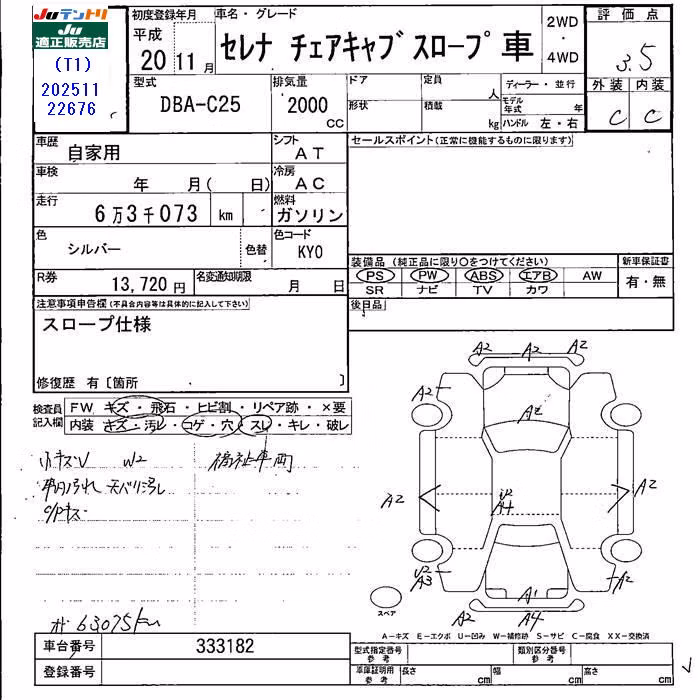 Juテントリ
Ju
適正販売店
(T1)
202511
22676
初度登録年月
平成
20 11月
車名・グレード
セレナ チェアキャブ スロープ 車
2WD
・
4WD
評価点
3.5
外装 内装
C C
型式
DBA-C25
排気量
2000
CC
ドア
形状
定員
人
積載
kg
ディーラー・並行
モデル年式 年
ハンドル 左・右
車歴
自家用
シフト
AT
セールスポイント(正常に機能するものに限ります)
車検
年 月( 日)
冷房
AC
走行
6万3千073 km
燃料
ガソリン
色
シルバー
色替
色コード
KY0
R券
13,720円
名変通知期限
月 日
装備品(純正品に限り○をつけてください)
PS PW ABS エアB AW
SR ナビ TV カワ
新車保証書
有・無
後日品
注意事項申告欄(不具合内容等は具体的に記入して下さい)
スロープ仕様
修復歴 有〔箇所 〕
検査員
記入欄
FW キズ・飛石・ヒビ割・リペア跡・×要
内装 キズ・汚レ・コゲ・穴・スレ・キレ・破レ
小キズU W2 福祉車両
車内汚れ 天バリ汚レ
63075km
A2 A2 A2
A2
A2
A2 A2
U2
A4
U2
A3
A2
A1
A2 A4
スペア
A−キズ E−エクボ U−凹み W−補修跡 S−サビ C−腐食 XX−交換済
車台番号 333182
登録番号
型式指定番号
参考
類別区分番号
参考
車庫証明用
参考
長さ cm 幅 cm 高さ cm